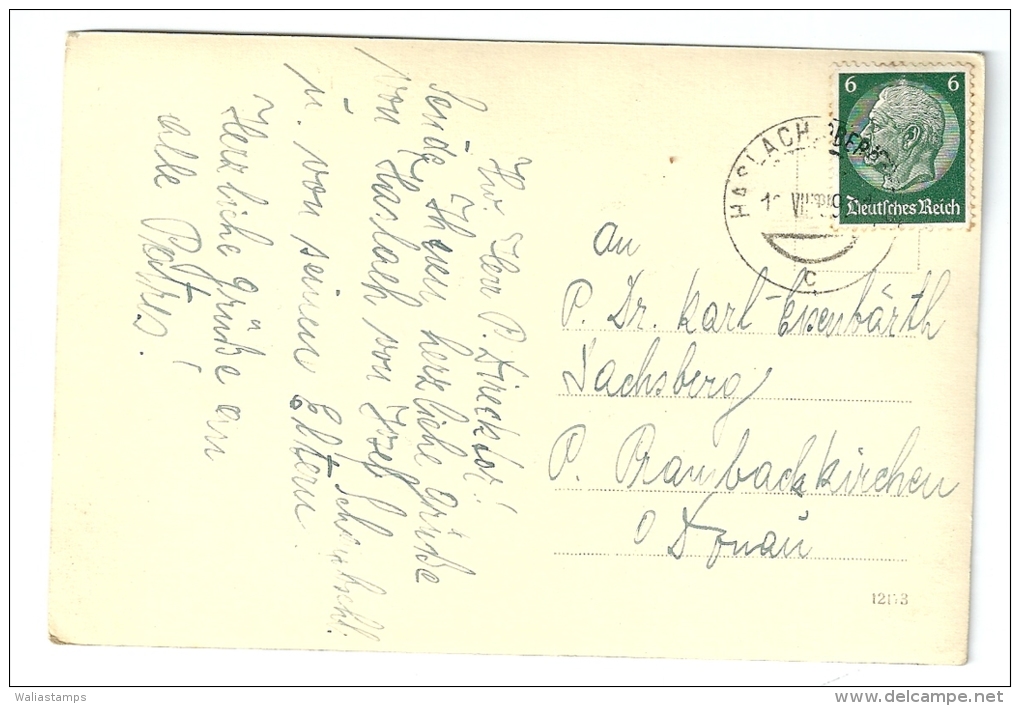 Hw. Herr P. Direcktor!
Sende Ihnen herzliche Grüße
von Haslach von Josef
u. von seinen Eltern.
Herzliche grüße an
alle Patres!
6 6
Deutsches Reich
HASLACH
c
an
P. Dr. Karl Eisenbärth
Dachsberg
P. Prambachkirchen
O Donau
12113
Waliastamps
delcampe.net